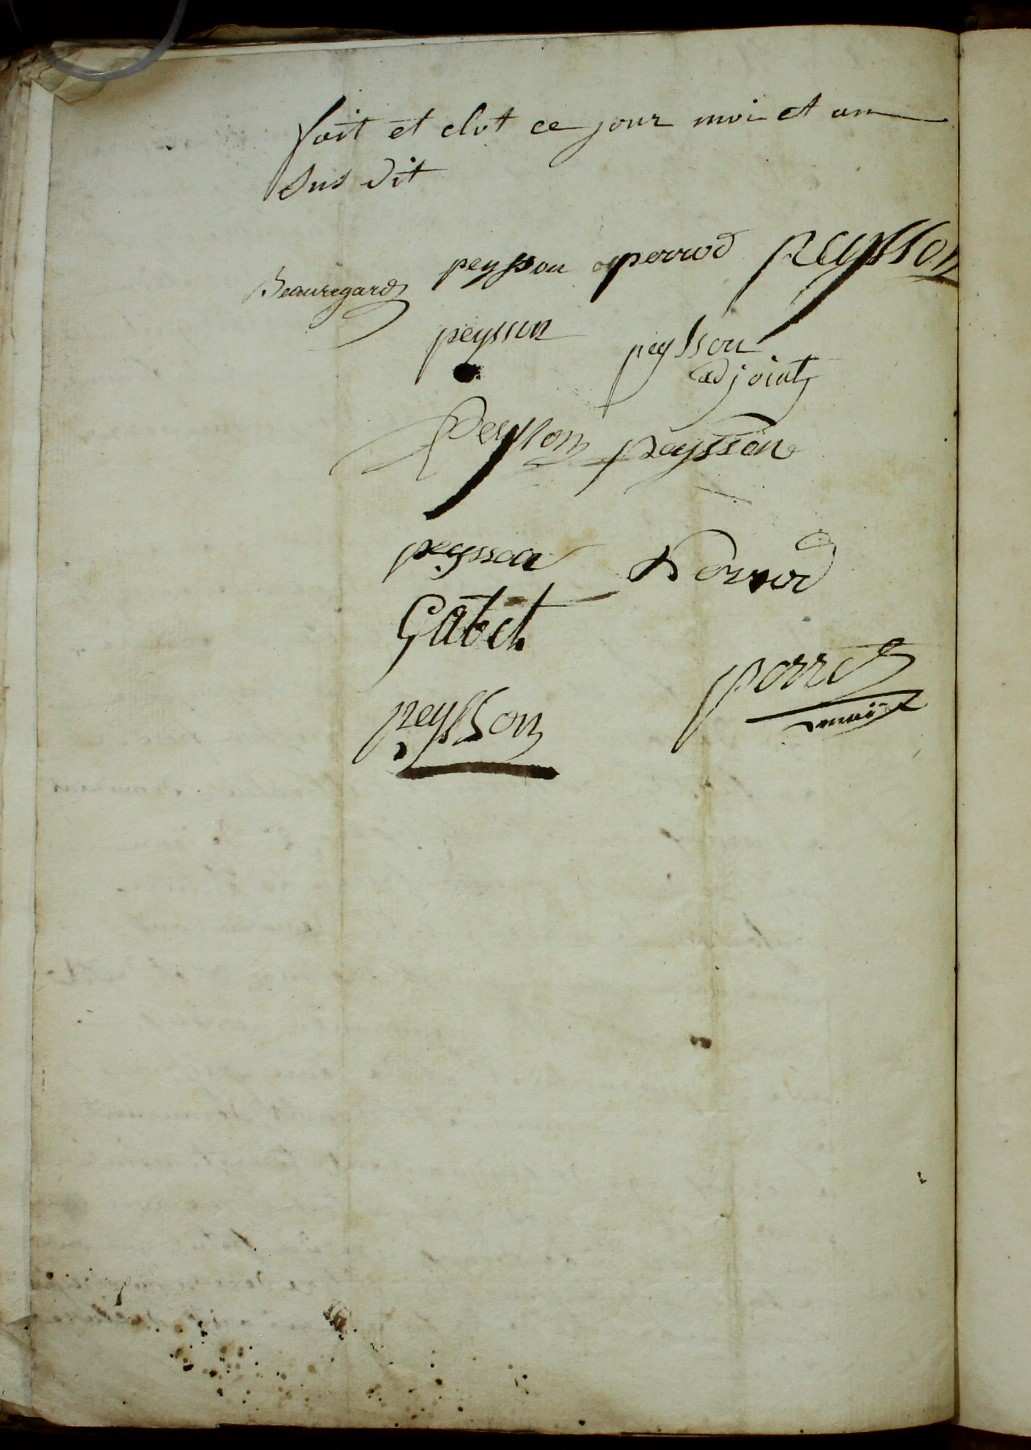 fait et clot ce jour moi et an
Sus dit
Beauregard peysson perrod peysson
peysson peysson
adjoint
Peysson peysson
peysson Perrod
Gabet
perrod
maire
peysson